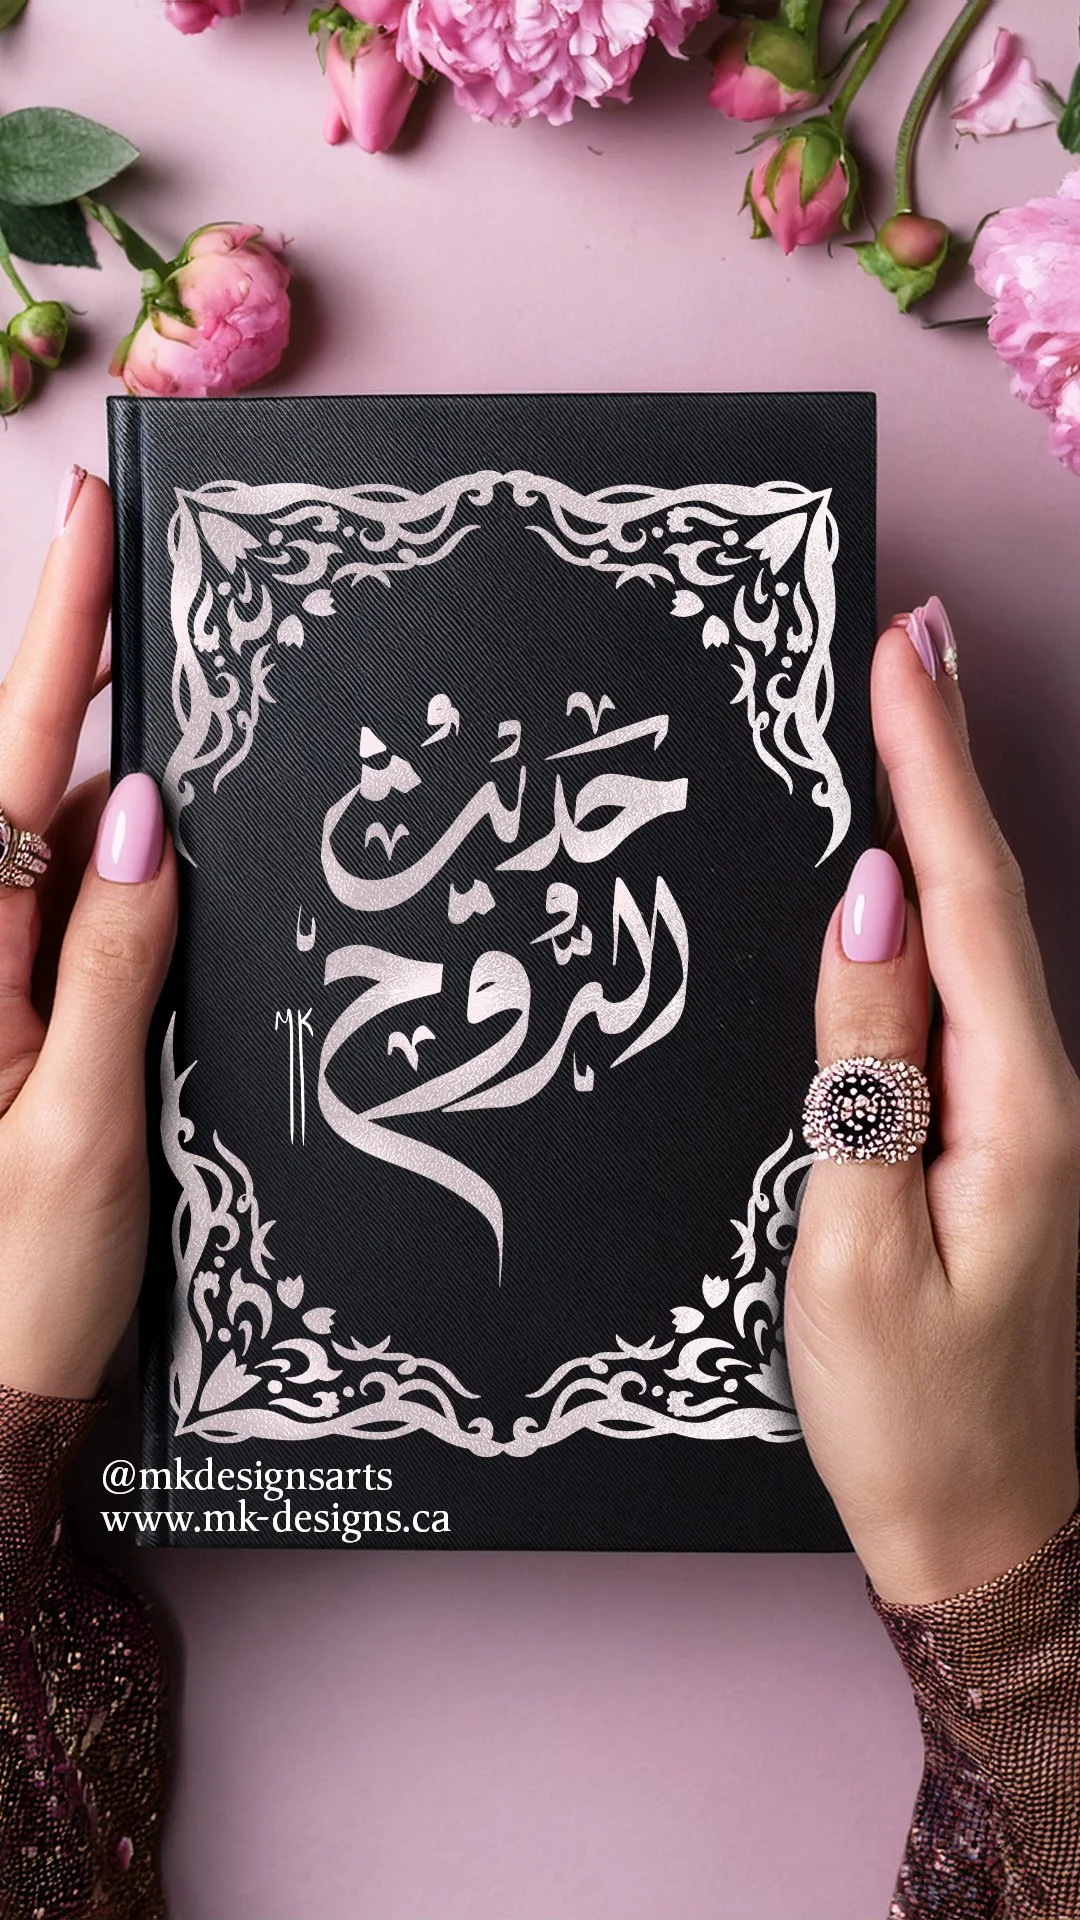 حَدِيْثُ
الرُّوح
MK
@mkdesignsarts
www.mk-designs.ca